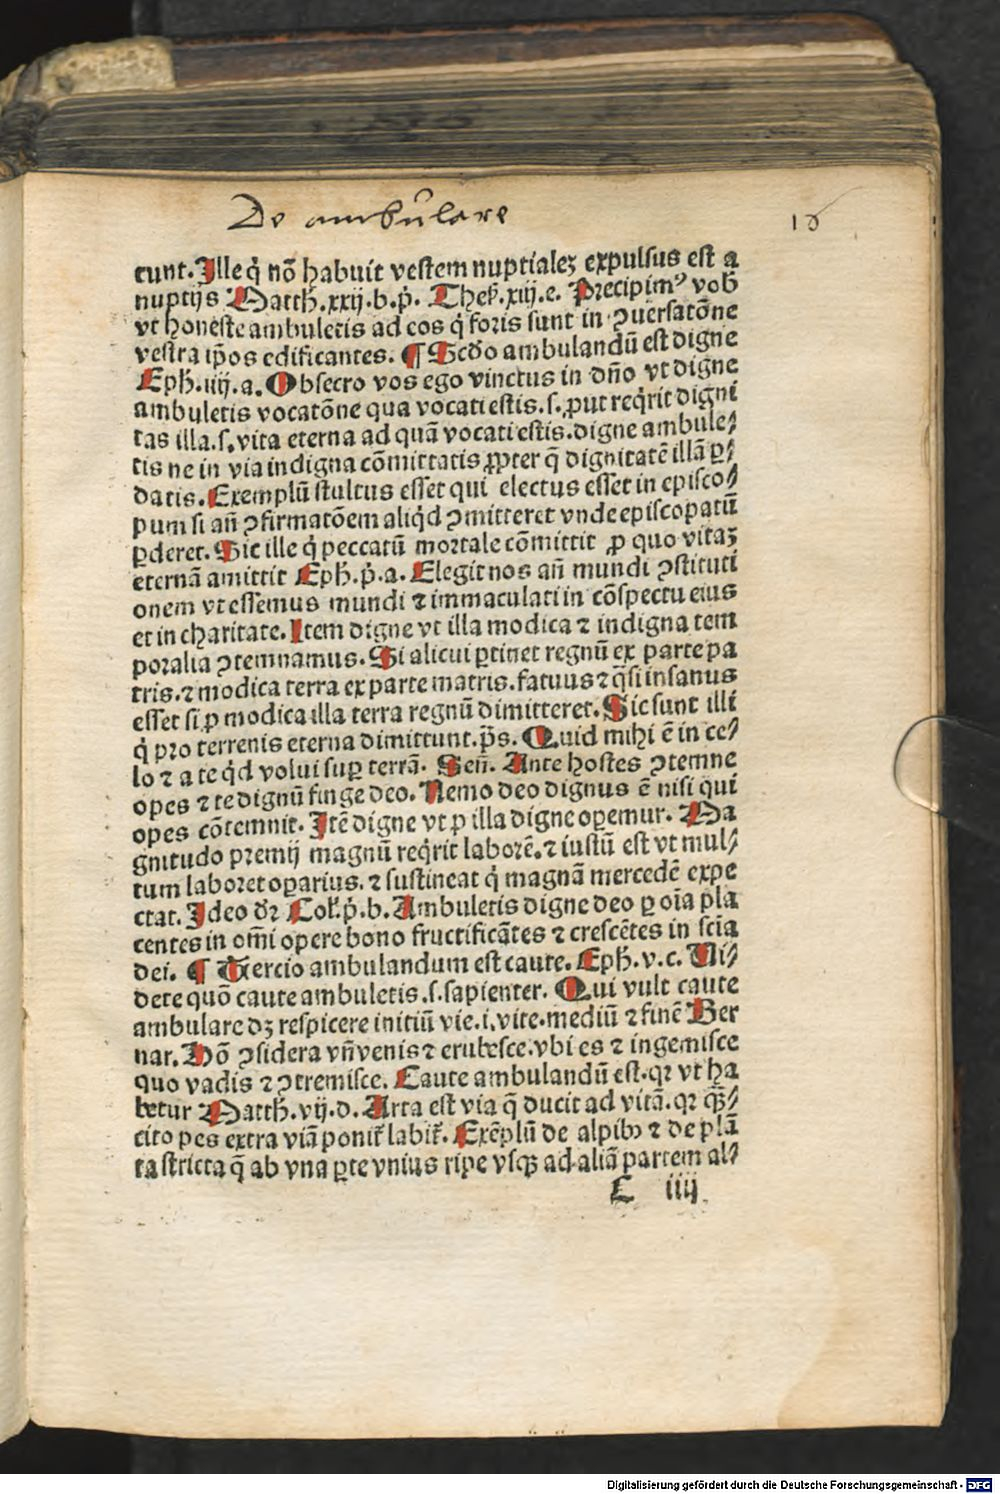 De ambulare
16
cunt. Ille q̇ nō habuit vestem nuptialeꝫ expulsus est a
nuptijs Matth̓.xxij.b.ṗ. Thes̓.xiiij.e. Precipim⁹ vob̓
vt honeste ambuletis ad eos q̇ foris sunt in ꝯuersatōne
vestra ip̄os edificantes. ¶ Scd̓o ambulandū est digne
Eph̓.iiij.a. Obsecro vos ego vinctus in dn̄o vt digne
ambuletis vocatōne qua vocati estis.s. ꝓut req̇rit digni
tas illa.s.vita eterna ad quā vocati estis.digne ambule⸗
tis ne in via indigna cōmittatis ꝓpter q̄ dignitatē illā ꝑ⸗
datis. Exemplū stultus esset qui electus esset in episco⸗
pum si an̄ ꝯfirmatōem aliq̇d ꝯmitteret vnde episcopatū
ꝑderet. Sic ille q̇ peccatū mortale cōmittit ꝓ quo vitaꝫ
eternā amittit Eph̓.ṗ.a. Elegit nos an̄ mundi ꝯstituti
onem vt essemus mundi ⁊ immaculati in cōspectu eius
et in charitate. Item digne vt illa modica ⁊ indigna tem
poralia ꝯtemnamus. Si alicui ꝑtinet regnū ex parte pa
tris.⁊ modica terra ex parte matris.fatuus ⁊ q̄si insanus
esset si ꝓ modica illa terra regnū dimitteret. Sic sunt illi
q̇ pro terrenis eterna dimittunt.p̄s. Quid mihi ē in ce⸗
lo ⁊ a te q̇d volui suꝑ terrā. Sen̄. Ante hostes ꝯtemne
opes ⁊ te dignū finge deo. Nemo deo dignus ē nisi qui
opes cōtemnit. Itē digne vt ꝓ illa digne oꝑemur. Ma
gnitudo premij magnū req̇rit laborē.⁊ iustū est vt mul⸗
tum laboret oꝑarius.⁊ sustineat q̇ magnā mercedē expe
ctat. Ideo dꝛ Col̓.ṗ.b. Ambuletis digne deo ꝑ oīa pla
centes in om̄i opere bono fructificātes ⁊ crescētes in sciā
dei. ¶ Tercio ambulandum est caute. Eph̓.v.c. Vi⸗
dete quō caute ambuletis.s.sapienter. Qui vult caute
ambulare dꝫ respicere initiū vie.i.vite.mediū ⁊ finē Ber
nar. Hō ꝯsidera vn̄ venis ⁊ erubesce.vbi es ⁊ ingemisce
quo vadis ⁊ ꝯtremisce. Caute ambulandū est.qꝛ vt ha
betur Matth̓.vij.d. Arta est via q̄ ducit ad vitā.qꝛ q̄⸗
cito pes extra viā ponit̓ labit̓. Exēplū de alpibꝰ ⁊ de plā
ta stricta q̄ ab vna ꝑte vnius ripe vsqꝫ ad aliā partem al⸗
C iiij
Digitalisierung gefördert durch die Deutsche Forschungsgemeinschaft - DFG